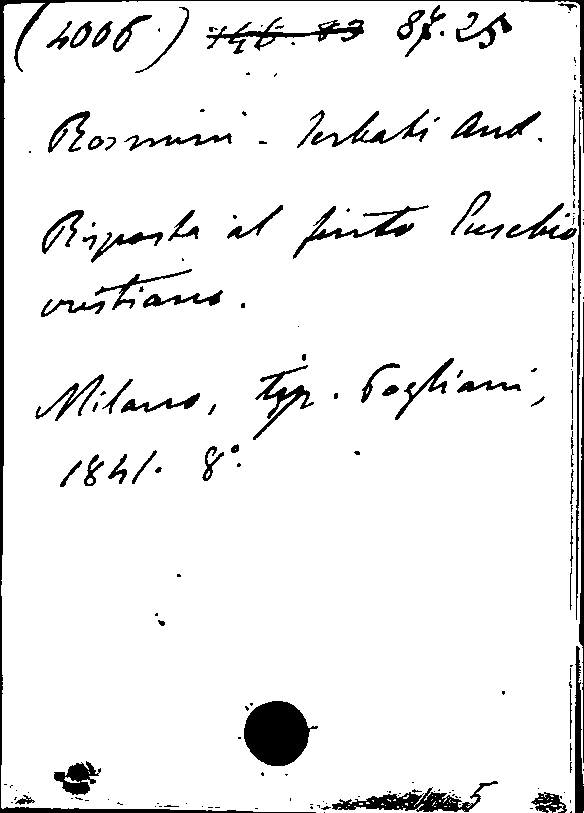 (4006) 146. 83 87.25
Rosmini - Serbati Ant.
Risposta al finto Eusebio
cristiano.
Milano, tip. Pogliani,
1841. 8°.
5